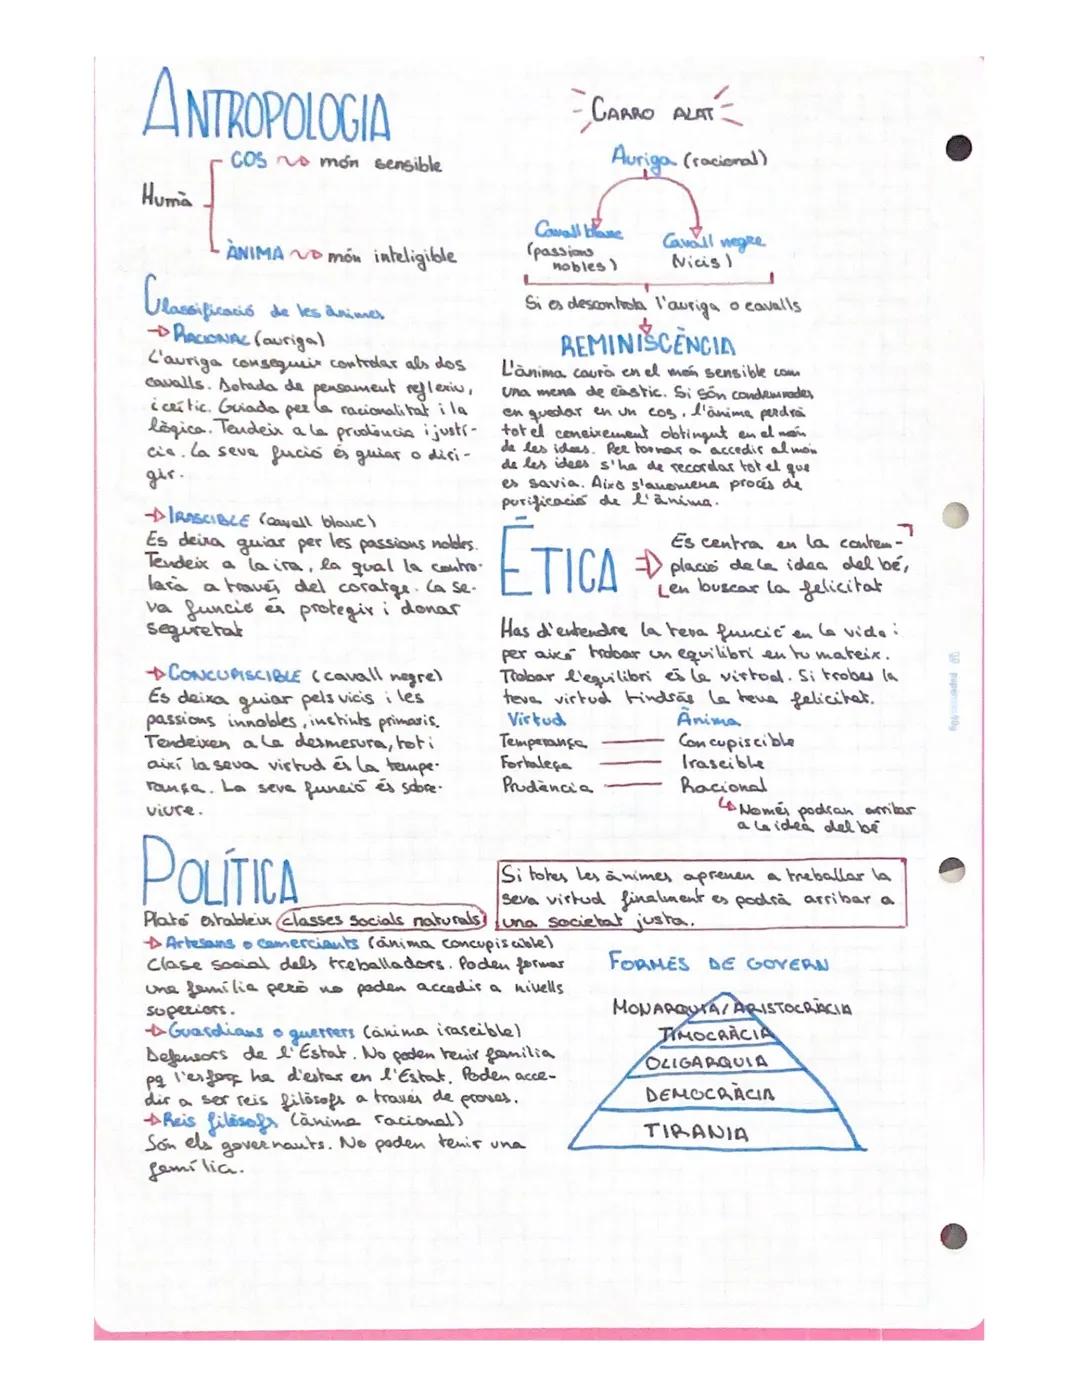 ANTROPOLOGIA
Humà
COS món sensible
ÀNIMA món inteligible
Classificació de les ànimes
RACIONAL (auriga)
L'auriga consegueix controlar als dos
cavalls. Dotada de pensament reflexiu,
i crític. Guiada per la racionalitat i la
lògica. Tendeix a la prudència i justí-
cia. La seva fució és guiar o diri-
gir.
IRASCIBLE (cavall blanc)
Es deixa guiar per les passions nobles.
Tendeix a la ira, la qual la contro-
larà a través del coratge. La se-
va funció és protegir i donar
seguretat
CONCUPISCIBLE (cavall negre)
Es deixa guiar pels vicis i les
passions innobles, instints primaris.
Tendeixen a la desmesura, tot i
així la seva virtud és la tempe-
rança. La seva funció és sobre-
viure.
CARRO ALAT
Auriga (racional)
Cavall blanc
(passions
nobles)
Cavall negre
(vicis)
Si es descontrola l'auriga o cavalls
REMINISCÈNCIA
L'ànima caurà en el món sensible com
una mena de càstic. Si són condemnades
en quedar en un cos, l'ànima perdrà
tot el coneixement obtingut en el món
de les idees. Per tornar a accedir al món
de les idees s'ha de recordar tot el que
es savia. Això s'anomena procés de
purificació de l'ànima.
ÈTICA
Es centra en la contem-
plació de la idea del bé,
en buscar la felicitat
Has d'entendre la teva funció en la vida i
per això trobar un equilibri en tu mateix.
Trobar l'equilibri és la virtud. Si trobes la
teva virtud tindràs la teva felicitat.
Virtud Ànima
Temperança Concupiscible
Fortaleça Irascible
Prudència Racional
Només podran arribar
a la idea del bé
POLÍTICA
Plató estableix classes socials naturals
Artesans o comerciants (ànima concupiscible)
Clase social dels treballadors. Poden formar
una família però no poden accedir a nivells
superiors.
Guardians o guerrers (ànima irascible)
Defensors de l'Estat. No poden tenir família
pq l'esforç ha d'estar en l'Estat. Poden acce-
dir a ser reis filòsofs a través de proves.
Reis filòsofs (ànima racional)
Són els governants. No poden tenir una
família.
Si totes les ànimes aprenen a treballar la
seva virtud finalment es podrà arribar a
una societat justa.
FORMES DE GOVERN
MONARQUIA/ARISTOCRÀCIA
TIMOCRÀCIA
OLIGARQUIA
DEMOCRÀCIA
TIRANIA